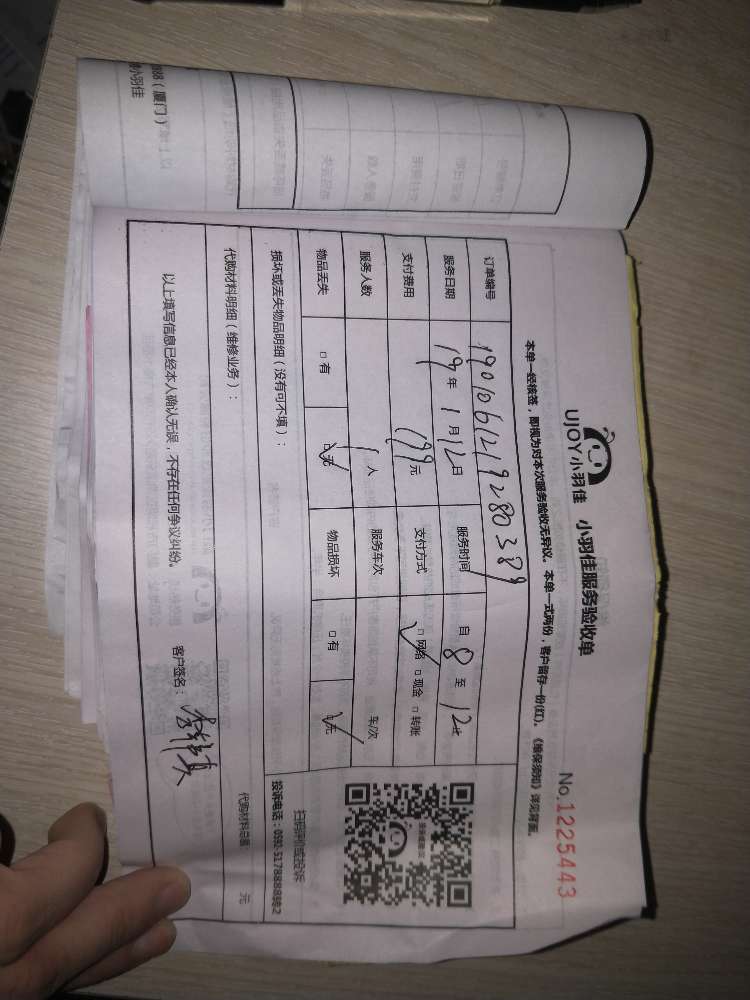 UJOY小羽佳 小羽佳服务验收单
No.1225443
本单一经核签，即视为对本次服务验收无异议。本单一式两份，客户留存一份(红)。《维保须知》详见背面。
订单编号 1901061219280389
服务日期 19年1月12日 服务时间 自8至12
支付费用 199元 支付方式 □网络 □现金 □转账
服务人数 1人 服务车次 车/次
物品丢失 □有 □无 物品损坏 □有 □无
损坏或丢失物品明细（没有可不填）：
扫码评价或投诉
投诉电话：0592-5178888转2
代购材料明细（维修业务）：
代购材料总额： 元
以上填写信息已经本人确认无误，不存在任何争议纠纷。
客户签名：
（厦门）
小羽佳